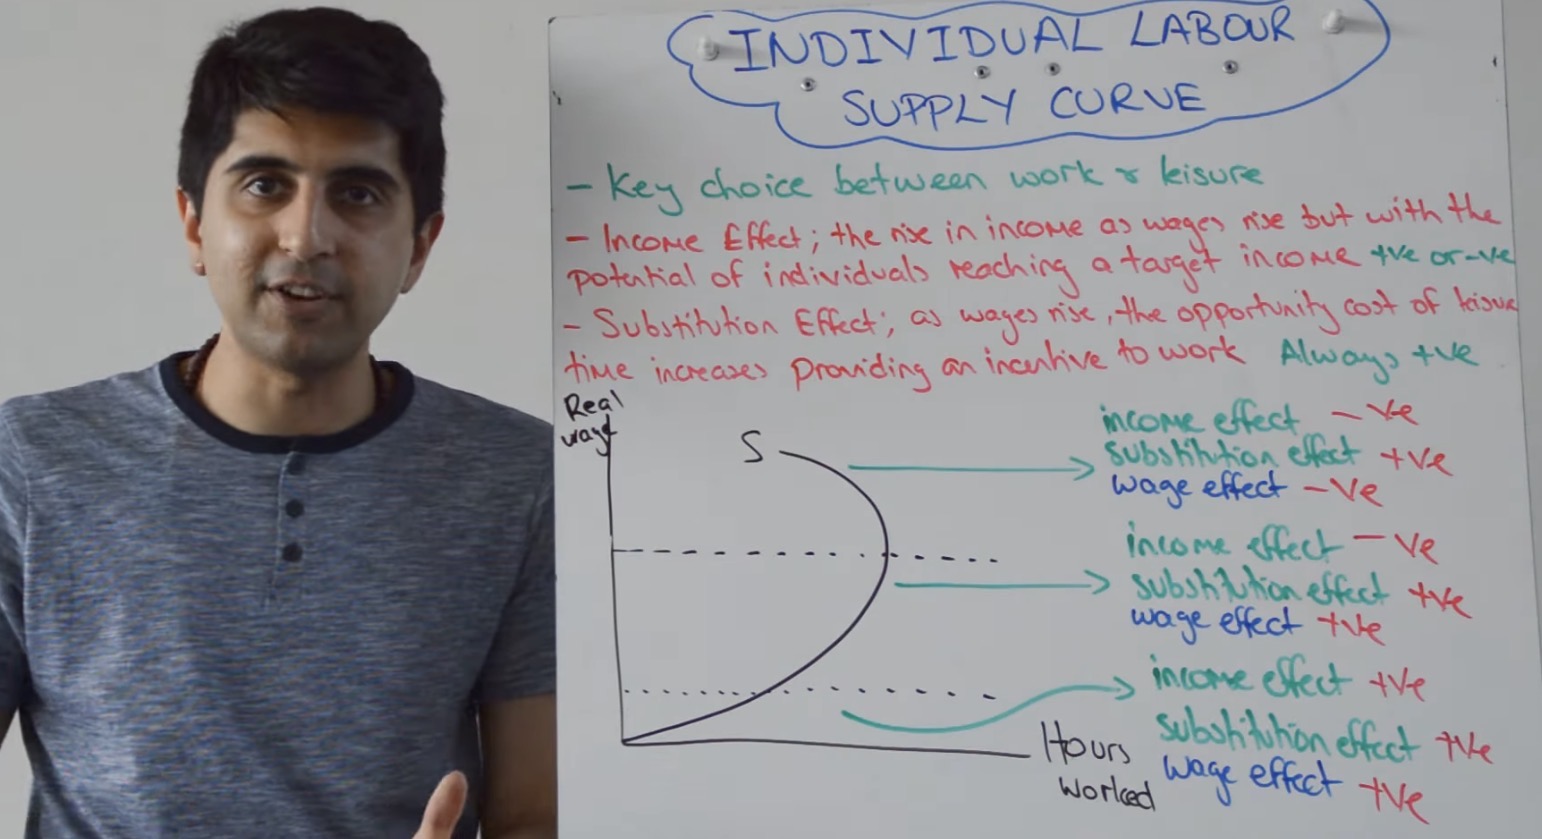 INDIVIDUAL LABOUR
SUPPLY CURVE
- Key choice between work & leisure
- Income Effect; the rise in income as wages rise but with the
potential of individuals reaching a target income +ve or -ve
- Substitution Effect; as wages rise, the opportunity cost of leisure
time increases providing an incentive to work Always +ve
Real
wage
S
income effect -ve
substitution effect +ve
wage effect -ve
income effect -ve
substitution effect +ve
wage effect +ve
income effect +ve
substitution effect +ve
wage effect +ve
Hours
Worked